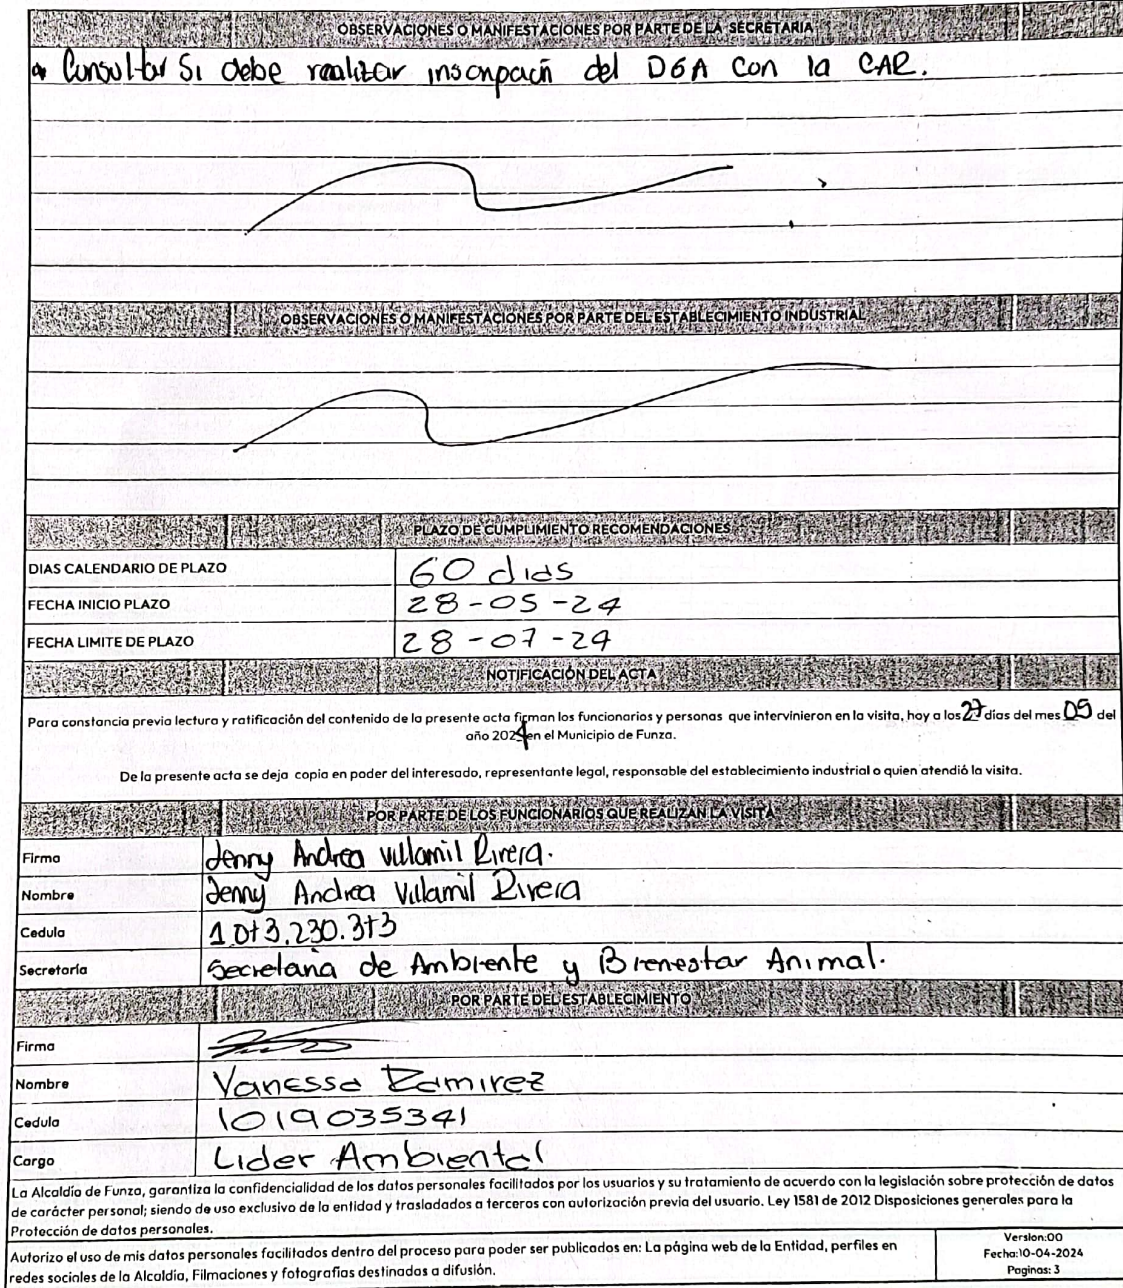 OBSERVACIONES O MANIFESTACIONES POR PARTE DE LA SECRETARIA
• Consultar Si debe realizar inscripación del DGA Con la CAR.
OBSERVACIONES O MANIFESTACIONES POR PARTE DEL ESTABLECIMIENTO INDUSTRIAL
PLAZO DE CUMPLIMIENTO RECOMENDACIONES
DIAS CALENDARIO DE PLAZO 60 dias
FECHA INICIO PLAZO 28-05-24
FECHA LIMITE DE PLAZO 28-07-24
NOTIFICACIÓN DEL ACTA
Para constancia previa lectura y ratificación del contenido de la presente acta firman los funcionarios y personas que intervinieron en la visita, hoy a los 27 días del mes 05 del
año 2024 en el Municipio de Funza.
De la presente acta se deja copia en poder del interesado, representante legal, responsable del establecimiento industrial o quien atendió la visita.
POR PARTE DE LOS FUNCIONARIOS QUE REALIZAN LA VISITA
Firma Jenny Andrea Villamil Rivera.
Nombre Jenny Andrea Villamil Rivera
Cedula 1.073.230.373
Secretaría Secretaria de Ambiente y Bienestar Animal.
POR PARTE DEL ESTABLECIMIENTO
Firma
Nombre Vanessa Ramirez
Cedula 1019035341
Cargo Lider Ambiental
La Alcaldía de Funza, garantiza la confidencialidad de los datos personales facilitados por los usuarios y su tratamiento de acuerdo con la legislación sobre protección de datos
de carácter personal; siendo de uso exclusivo de la entidad y trasladados a terceros con autorización previa del usuario. Ley 1581 de 2012 Disposiciones generales para la
Protección de datos personales.
Autorizo el uso de mis datos personales facilitados dentro del proceso para poder ser publicados en: La página web de la Entidad, perfiles en
redes sociales de la Alcaldía, Filmaciones y fotografías destinadas a difusión.
Version:00
Fecha:10-04-2024
Paginas: 3